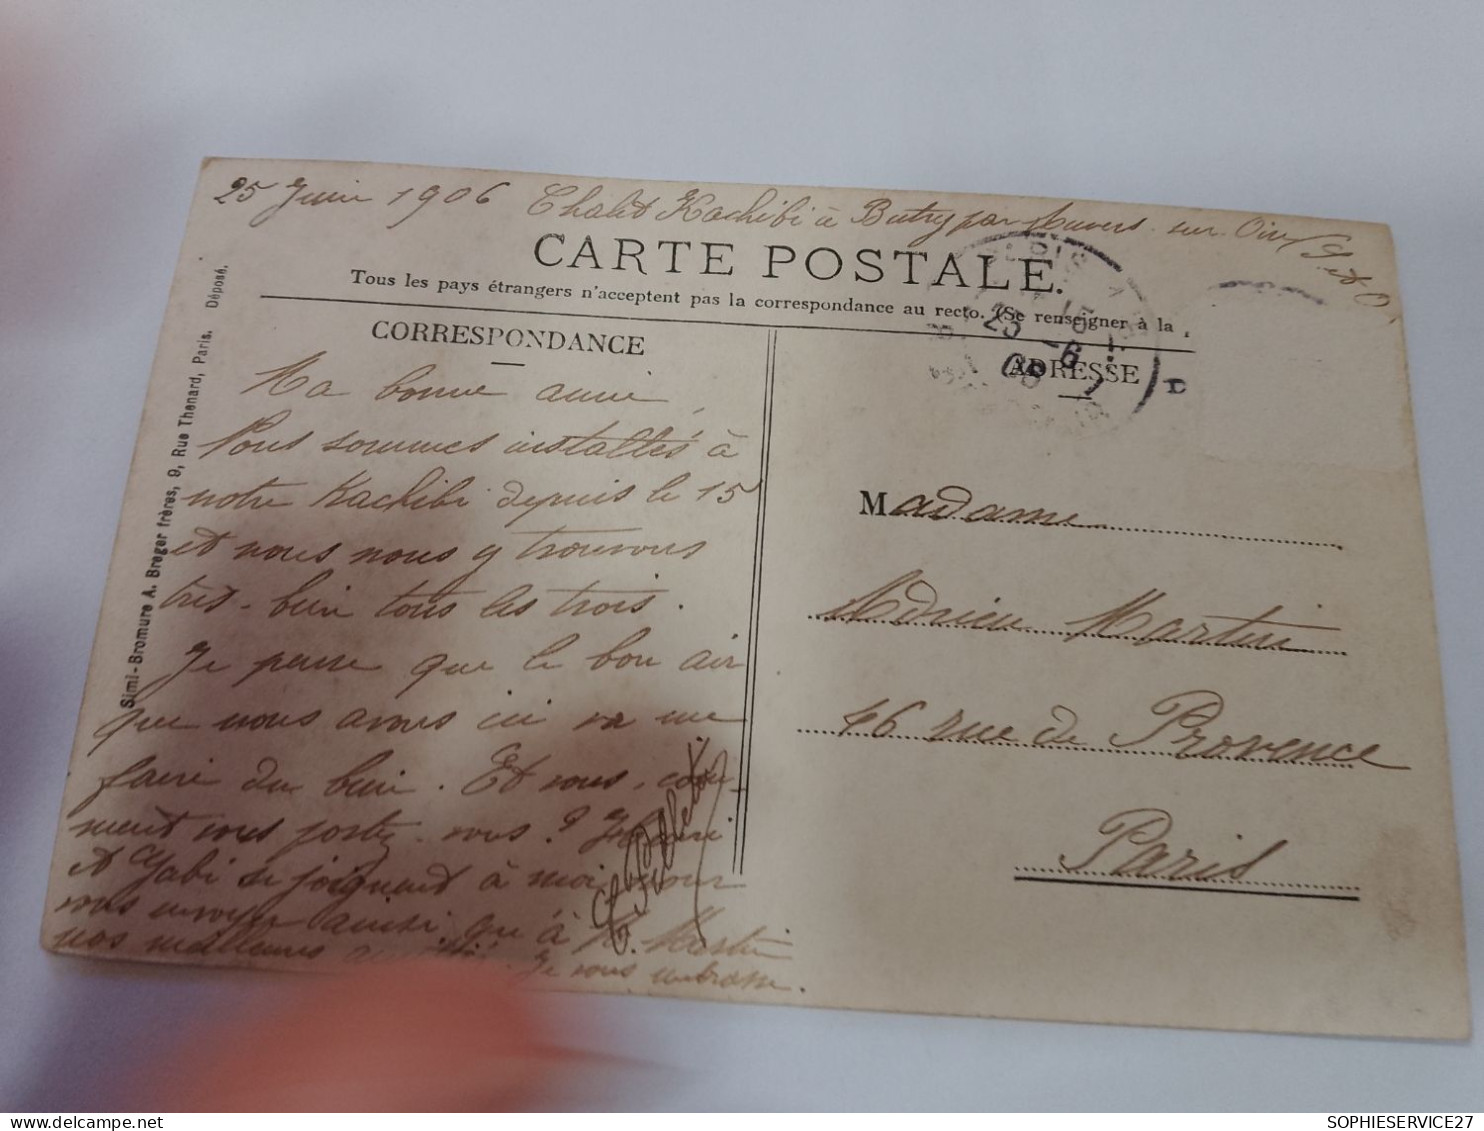 25 Juin 1906 Chalet Kachibi à Butry par Auvers-sur-Oise (S et O)
CARTE POSTALE.
Tous les pays étrangers n'acceptent pas la correspondance au recto. (Se renseigner à la
CORRESPONDANCE
ADRESSE
Simi-Bromure A. Breger frères, 9, Rue Thenard, Paris. Déposé.
Ma bonne amie,
Nous sommes installés à
notre Kachibi depuis le 15
et nous nous y trouvons
très-bien tous les trois.
Je pense que le bon air
que nous avons ici va me
faire du bien. Et vous, com-
ment vous portez-vous?
et Gabi se joignent à moi pour
vous envoyer ainsi qu'à M. Martin
nos meilleures amitiés. Je vous embrasse.
Madame
Adrien Martin
46 rue de Provence
Paris
25 -6
06
SOPHIESERVICE27